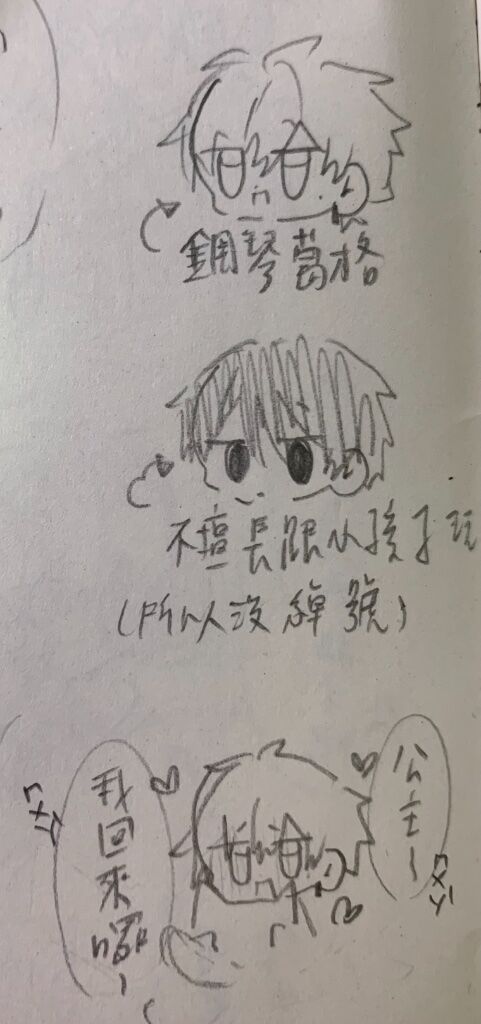 鋼琴葛格
不擅長跟小孩子玩
(所以沒綽號)
公主~
我回來囉~